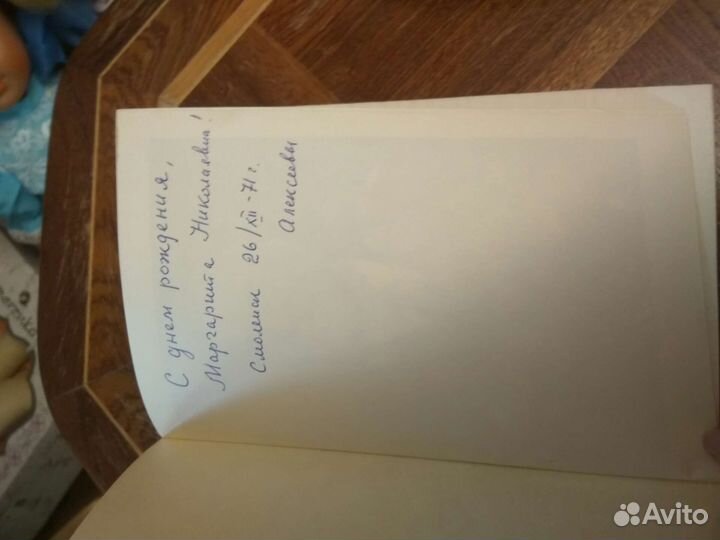 С днем рождения,
Маргарита Николаевна!
Смоленск 26/XII-71 г.
Алексеевы
Avito